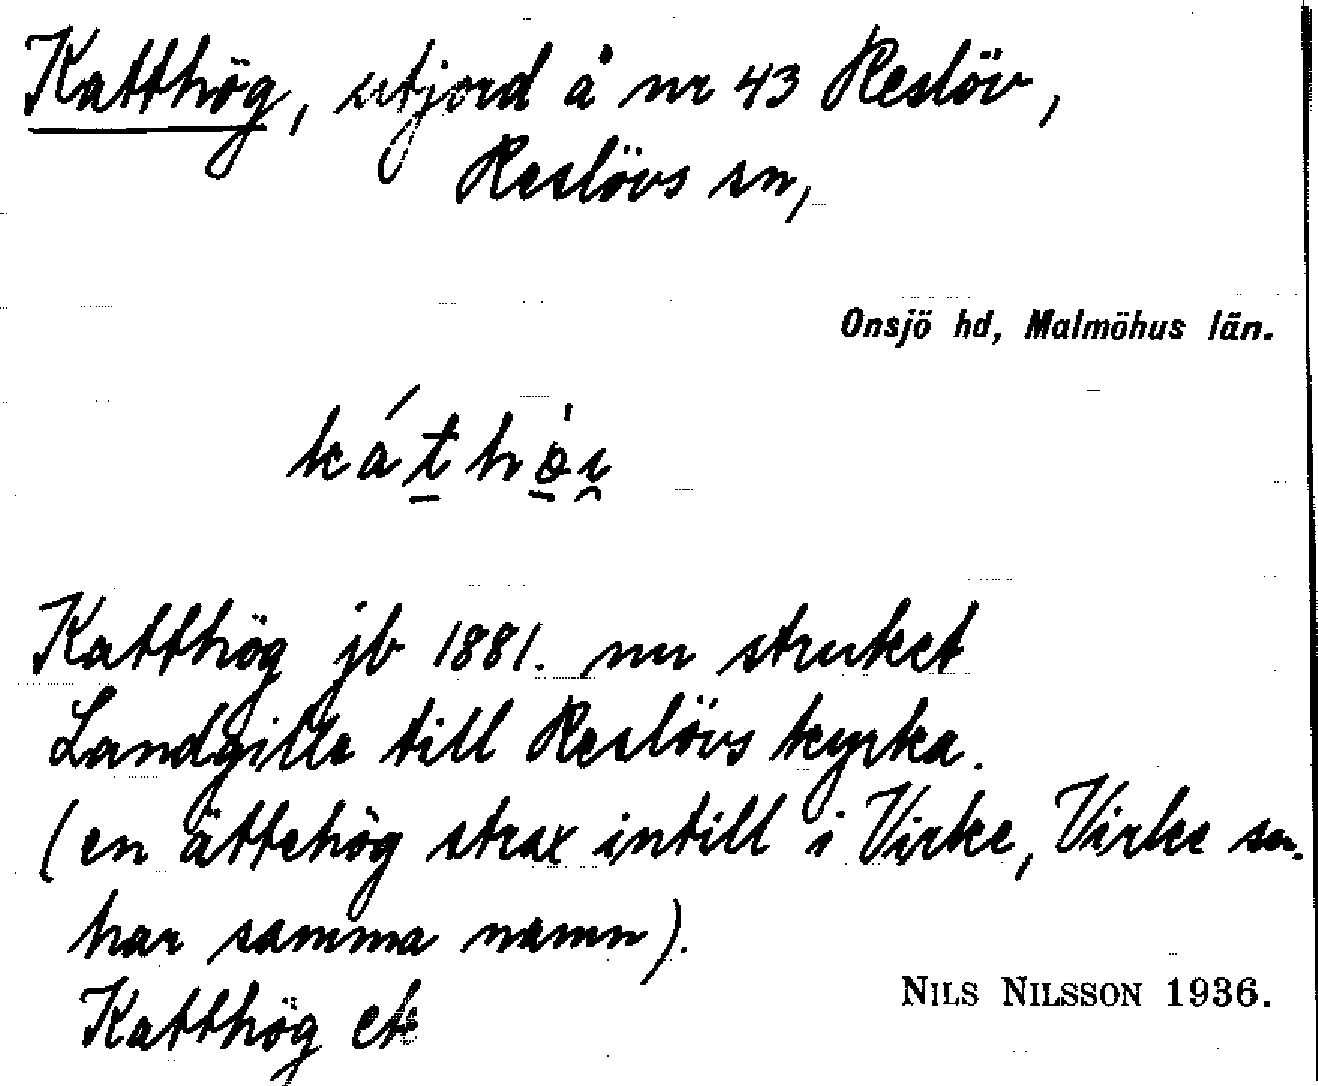 Katthög, utjord å nr 43 Reslöv,
Reslövs sn,
Onsjö hd, Malmöhus län.
Katthög jb 1881. nu struket
Landgille till Reslövs kyrka.
(en ättehög strax intill i Virke, Virke sn.
har samma namn).
Katthög ek
NILS NILSSON 1936.